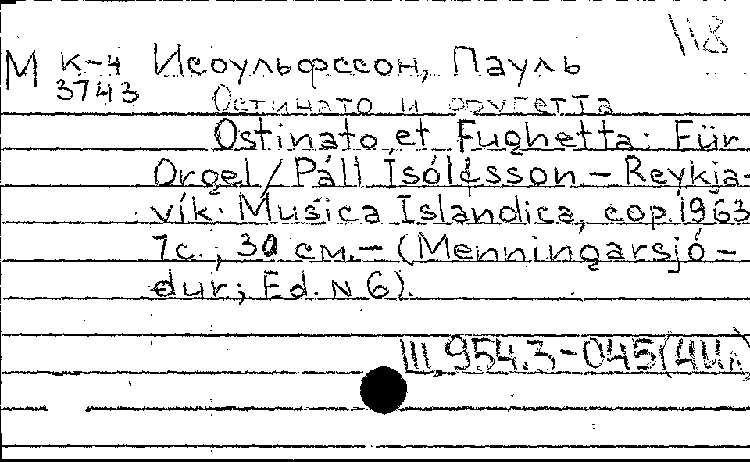 118
М К-4 Исоульфссон, Пауль
3743
Остинато и фругетта
Ostinato et Fughetta: Für
Orgel / Páll Ísólfsson – Reykja-
vík: Musica Islandica, cop. 1963
7с.; 30 см. – (Menningarsjó-
dur; Ed. N 6).
III 954.3-045(4Ил)